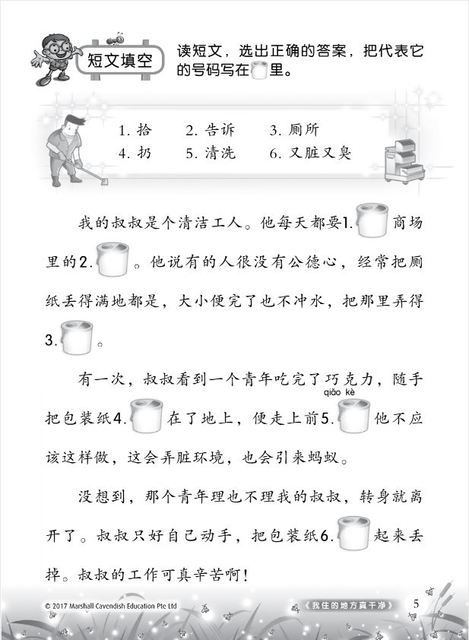 短文填空
读短文，选出正确的答案，把代表它
的号码写在 里。
1. 拾 2. 告诉 3. 厕所
4. 扔 5. 清洗 6. 又脏又臭
我的叔叔是个清洁工人。他每天都要1. 商场
里的2. 。他说有的人很没有公德心，经常把厕
纸丢得满地都是，大小便完了也不冲水，把那里弄得
3. 。
有一次，叔叔看到一个青年吃完了巧克力，随手
qiǎo kè
把包装纸4. 在了地上，便走上前5. 他不应
该这样做，这会弄脏环境，也会引来蚂蚁。
没想到，那个青年理也不理我的叔叔，转身就离
开了。叔叔只好自己动手，把包装纸6. 起来丢
掉。叔叔的工作可真辛苦啊！
© 2017 Marshall Cavendish Education Pte Ltd
《我住的地方真干净》 5